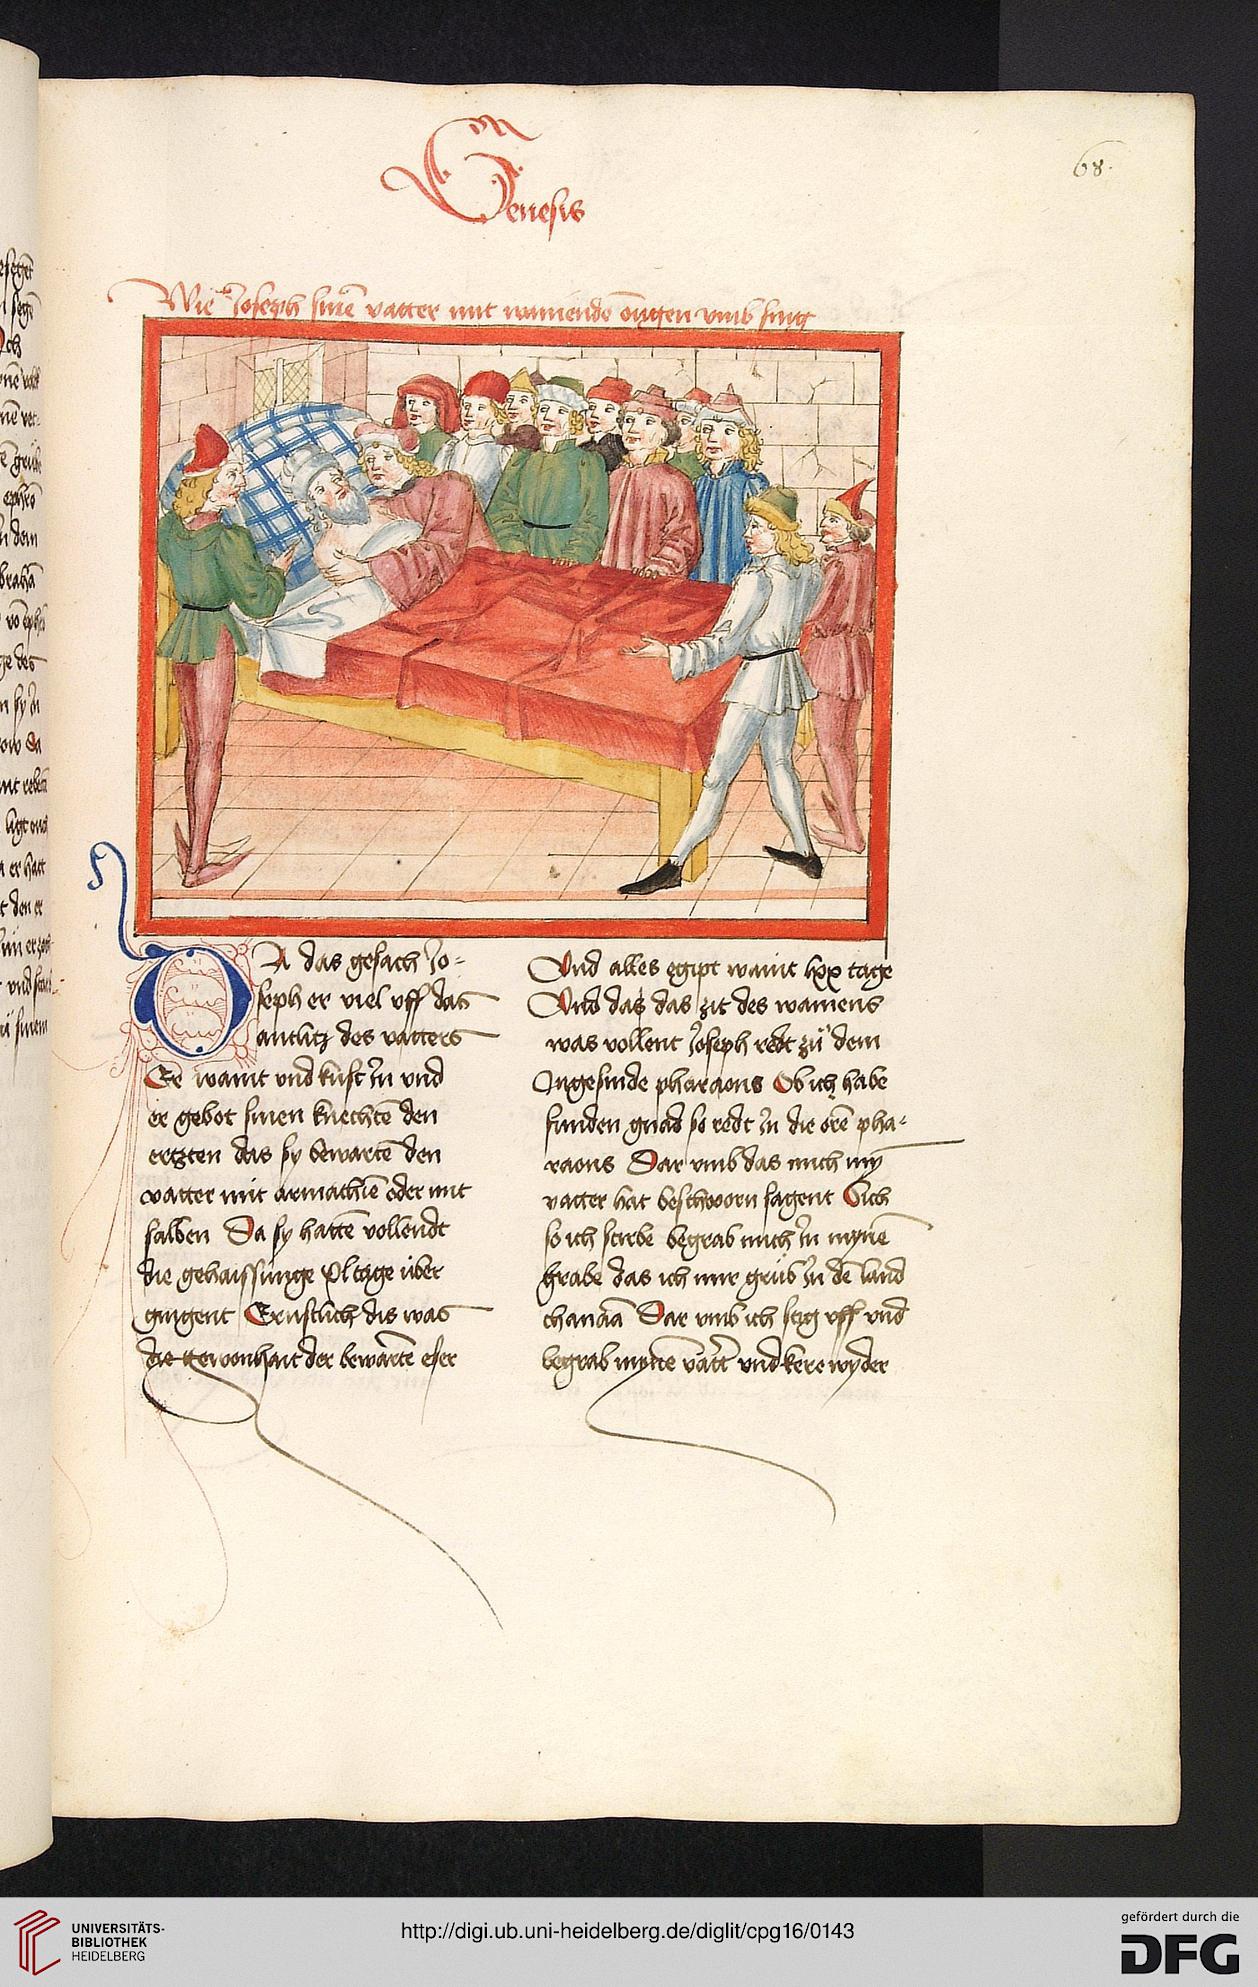 Genesis
68.
Wie Joseph sinē vatter mit wainendē ougen vmb fing
DA das gesach Jo-
seph er viel vff das
antlitz des vatters
Er waint vnd kust in vnd
er gebot sinen knechtē den
ertzten das sy bewartē den
vatter mit armathiē oder mit
salben Da sy hattē vollendt
die gehaissunge xl tage über
gingent Ernstlich dis was
die gewonhait der bewartē eser
Vnd alles egipt waint lxx tage
Vnd das das zit des wainens
was vollent Joseph redt zü dem
Ingesinde pharaons Ob ich habe
funden gnad so redt in die orē pha-
raons Dar vmb das mich myn
vatter hat beschworn sagent Sich
so ich sterbe begrab mich in mynē
grabe das ich mir grüb in dē land
chanaā Dar vmb ich stig vff vnd
begrab mynē vatt vnd kere wyder
UNIVERSITÄTS-
BIBLIOTHEK
HEIDELBERG
http://digi.ub.uni-heidelberg.de/diglit/cpg16/0143
gefördert durch die
DFG